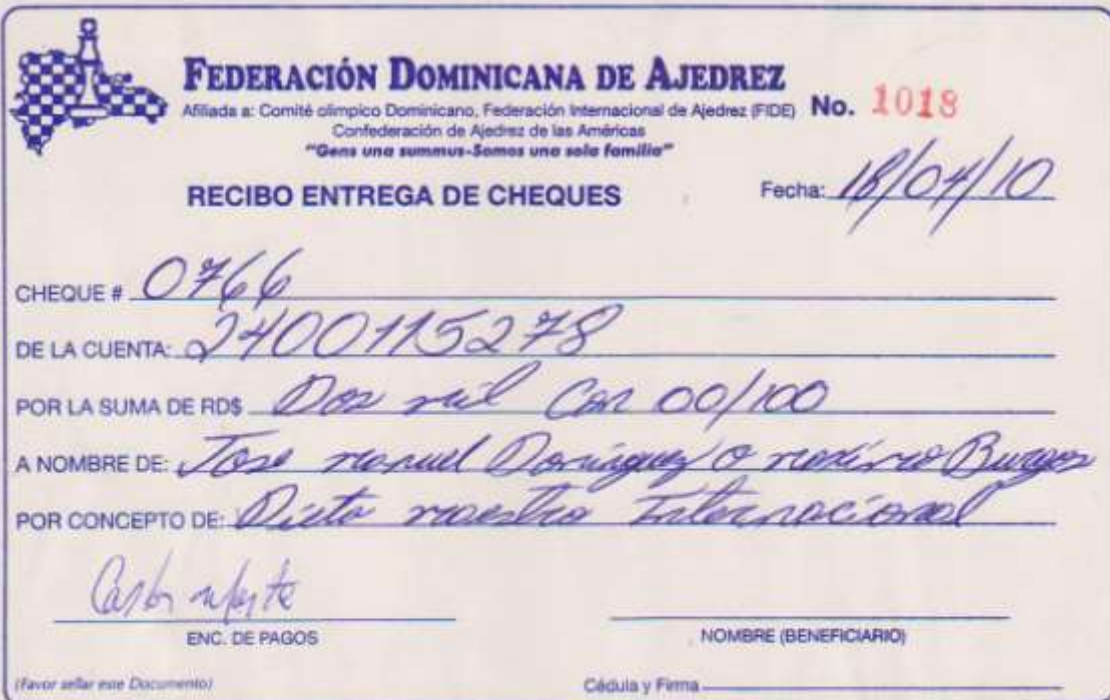 FEDERACIÓN DOMINICANA DE AJEDREZ
Afiliada a: Comité olimpico Dominicano, Federación Internacional de Ajedrez (FIDE) No. 1018
Confederación de Ajedrez de las Américas
"Gens una summus-Somos una sola familia"
RECIBO ENTREGA DE CHEQUES Fecha: 18/04/10
CHEQUE # 0766
DE LA CUENTA: 2400115278
POR LA SUMA DE RD$ Dos mil Con 00/100
A NOMBRE DE: Jose manuel Dominguez O maximo Burgos
POR CONCEPTO DE: Dieta maestro Internacional
ENC. DE PAGOS NOMBRE (BENEFICIARIO)
(Favor sellar este Documento) Cédula y Firma